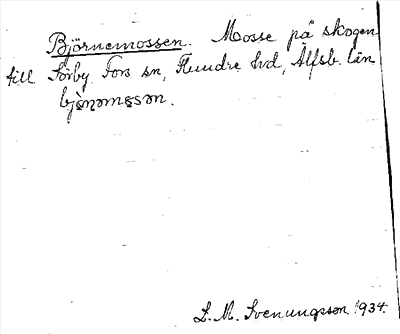 Björnemossen. Mosse på skogen
till Sörby. Fors sn, Flundre hd, Älfsb. län
bjònəmɛsən.
L. M. Svenungsson 1934.